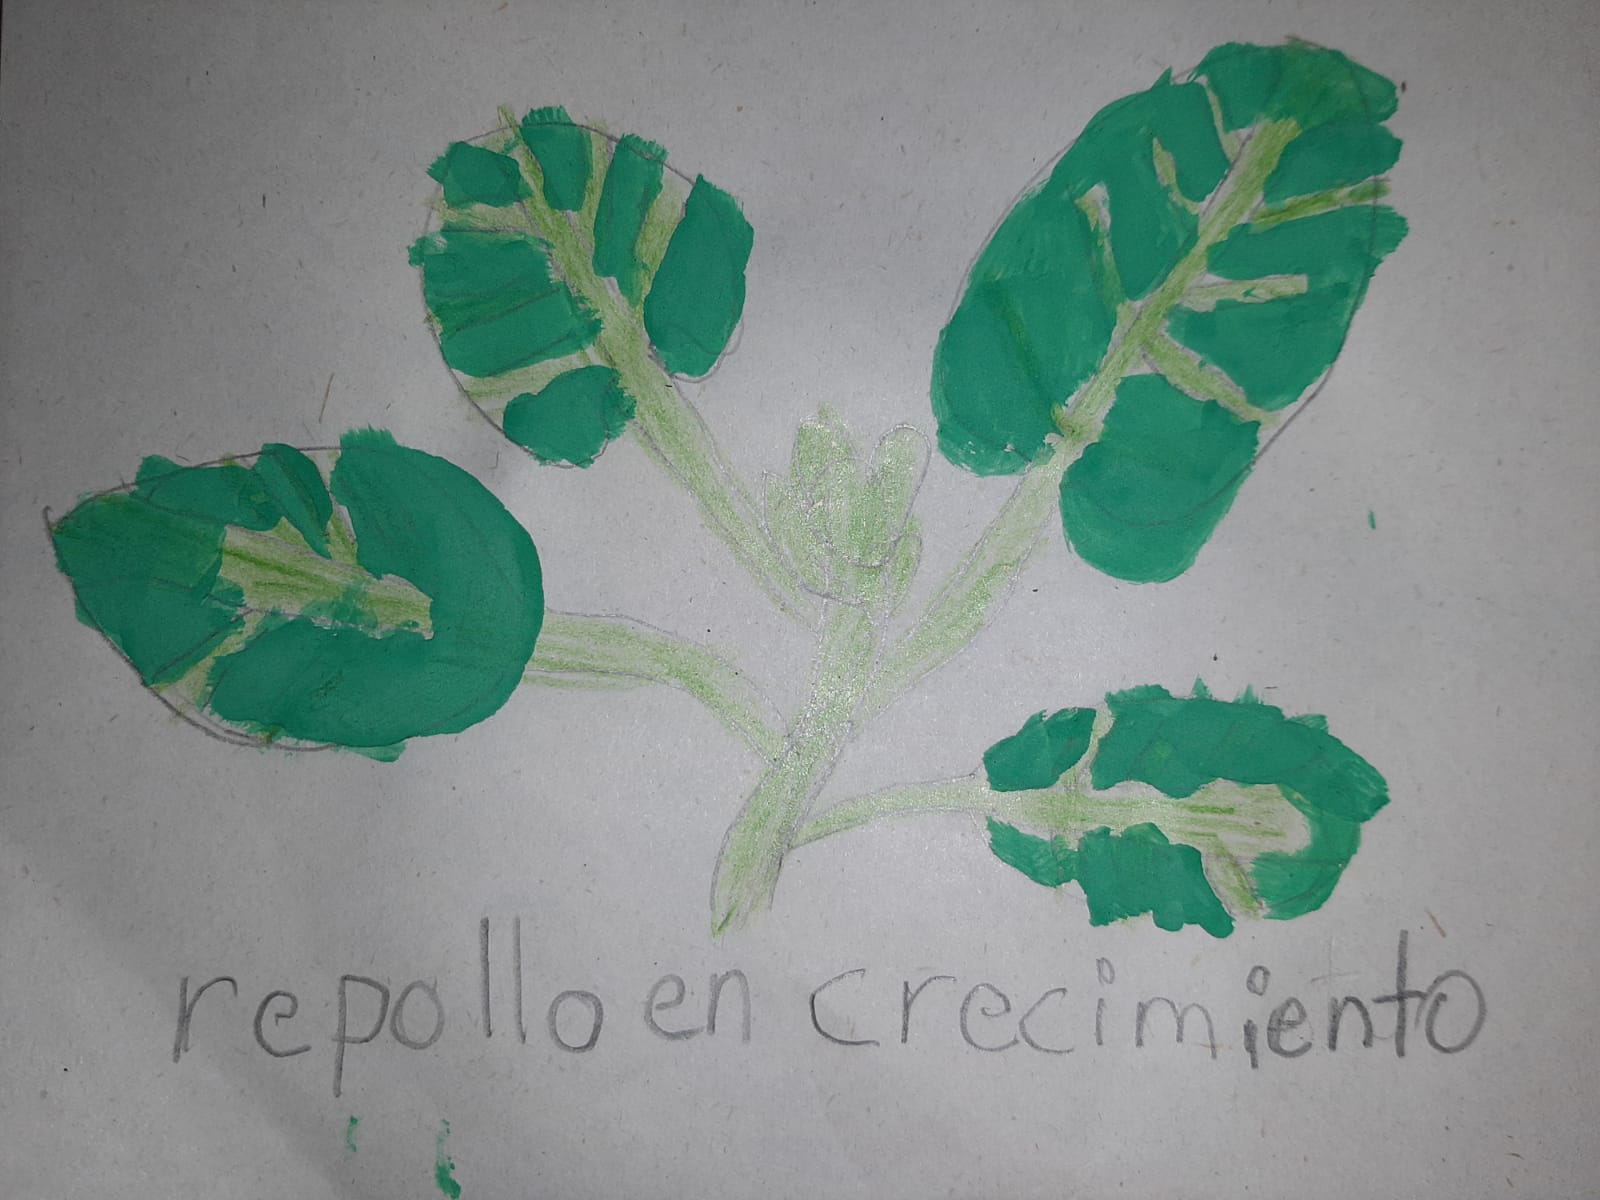 repollo en crecimiento